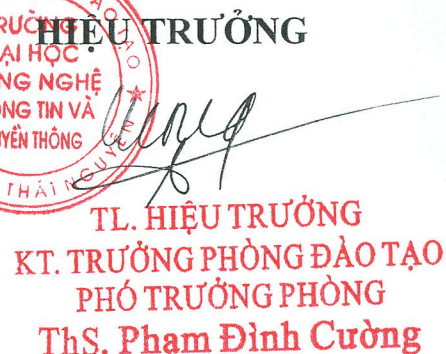 HIỆU TRƯỞNG
ẠI HỌC
NG NGHỆ
NG TIN VÀ
YỀN THÔNG
THÁI NGUYÊN
TL. HIỆU TRƯỞNG
KT. TRƯỞNG PHÒNG ĐÀO TẠO
PHÓ TRƯỞNG PHÒNG
ThS. Phạm Đình Cường